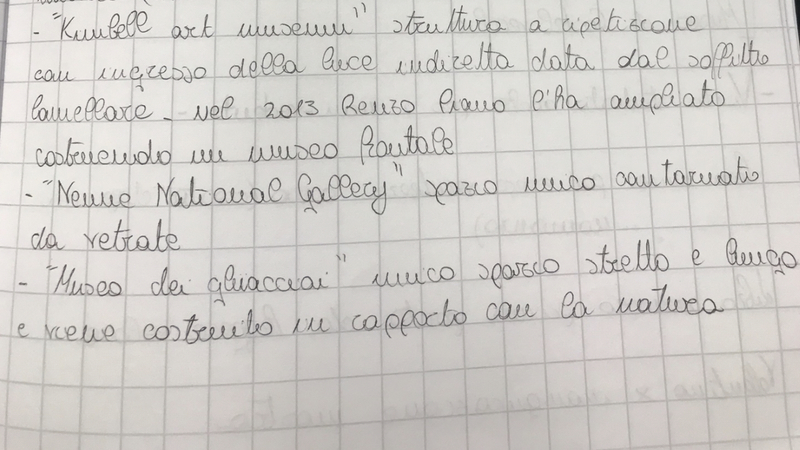 - "Kimbell art museum" struttura a ripetizione
con ingresso della luce indiretta data dal soffitto
lamellare - nel 2013 Renzo Piano l'ha ampliato
costruendo un museo frontale
- "Neue National Gallery" spazio unico contornato
da vetrate
- "Museo dei ghiacciai" unico spazio stretto e lungo
e viene costruito in rapporto con la natura